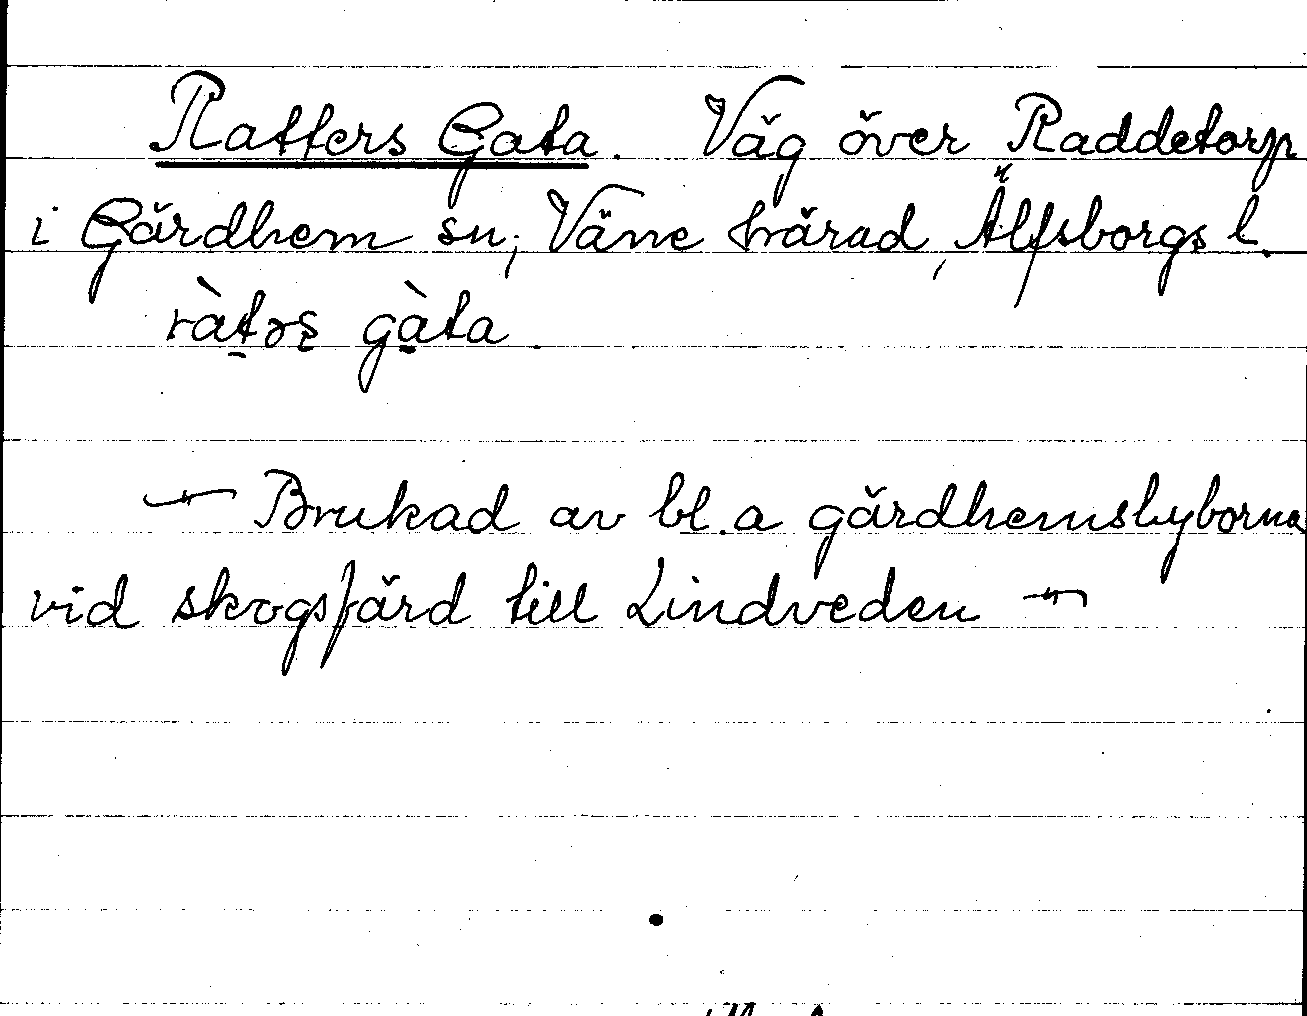 Ratters Gata. Väg över Raddetorp
i Gärdhem sn, Väne härad, Älfsborgs l.
ràtəs gàta
—"— Brukad av bl.a gärdhemsbyborna
vid skogsfärd till Lindveden —"—